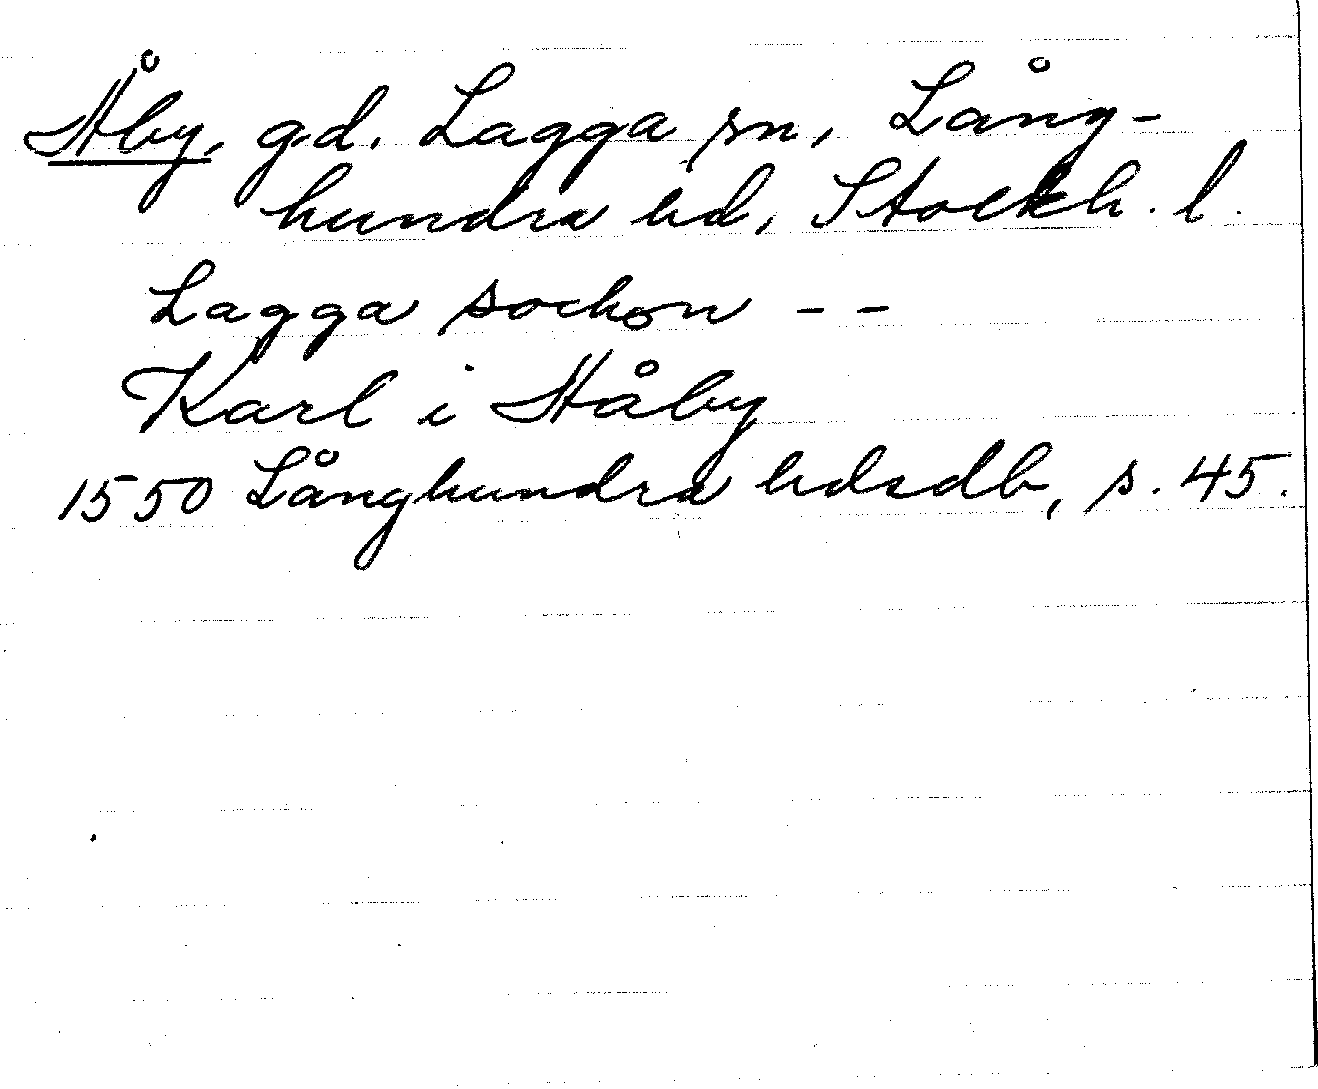 Åby, gd. Lagga sn, Lång-
hundra hd, Stockh. l.
Lagga sochon - -
Karl i Håby
1550 Långhundra hdsdb, s. 45.